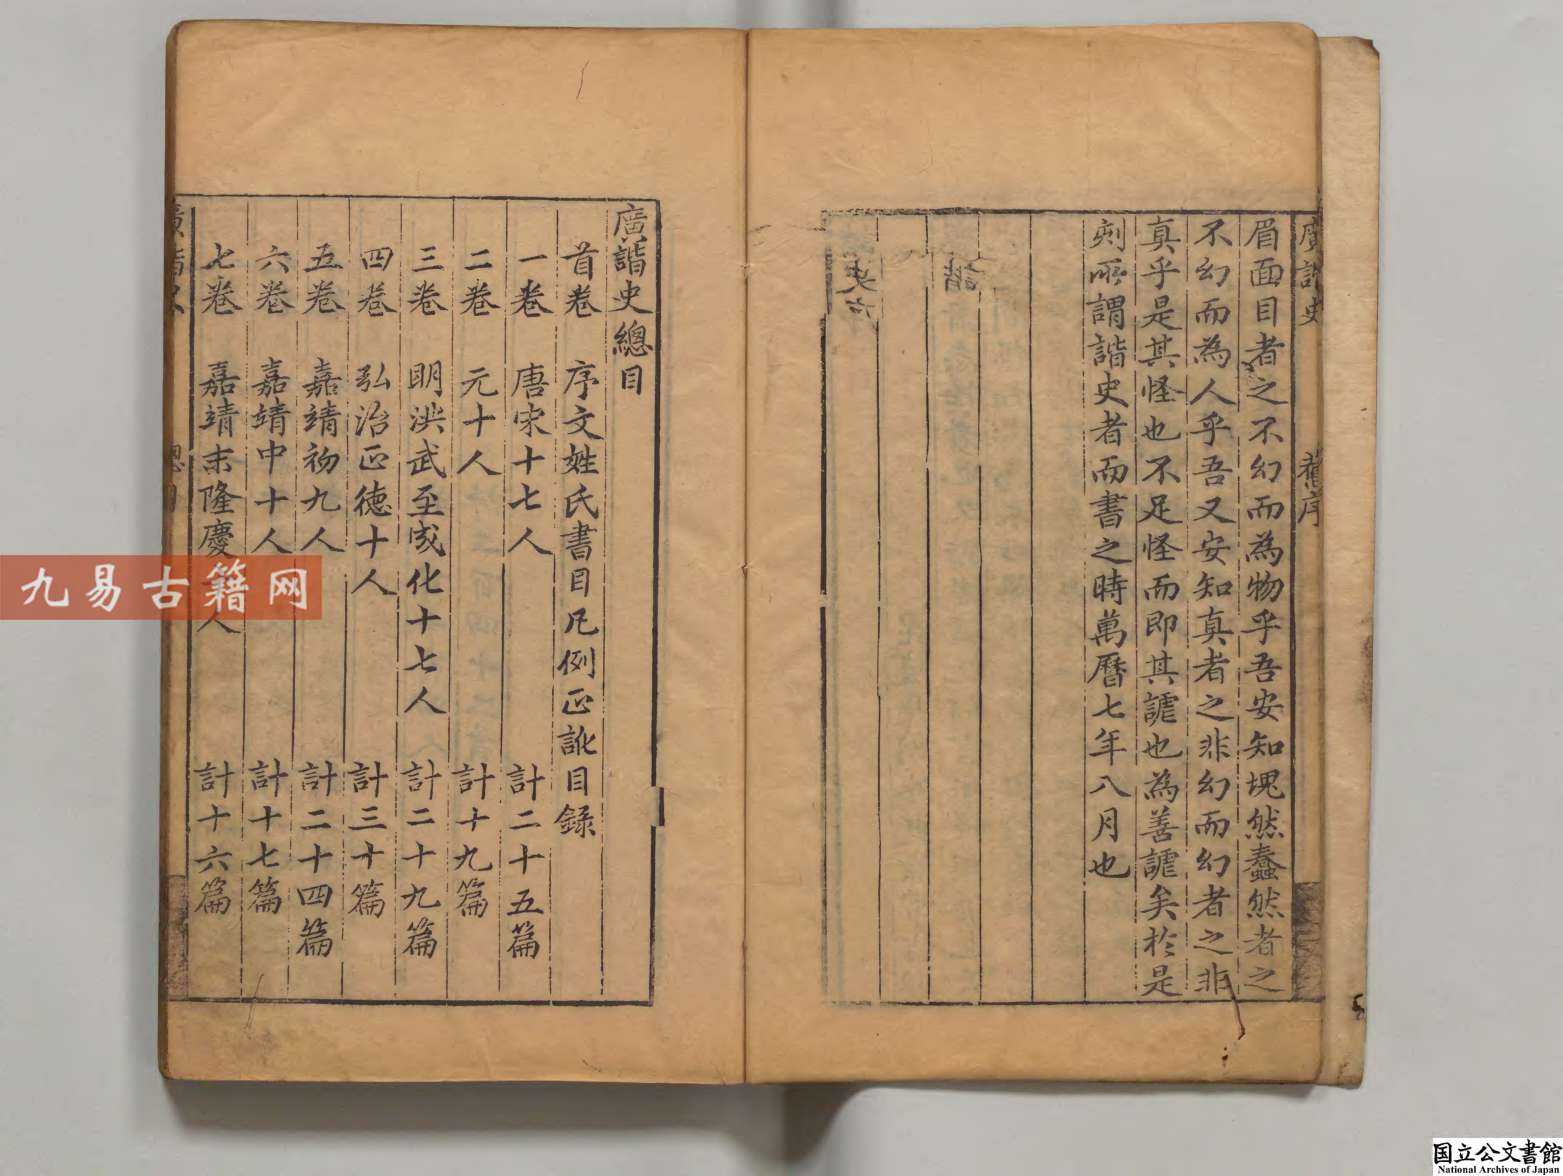 廣諧史
舊序
眉面目者之不幻而為物乎吾安知塊然蠢然者之
不幻而為人乎吾又安知真者之非幻而幻者之非
真乎是其怪也不足怪而即其謔也為善謔矣於是
刻所謂諧史者而書之時萬曆七年八月也
廣諧史總目
首卷　序文姓氏書目凡例正訛目錄
一卷　唐宋十七人　計二十五篇
二卷　元十人　計十九篇
三卷　明洪武至成化十七人　計二十九篇
四卷　弘治正德十人　計三十篇
五卷　嘉靖初九人　計二十四篇
六卷　嘉靖中十人　計十七篇
七卷　嘉靖末隆慶人　計十六篇
總目
九易古籍网
国立公文書館
National Archives of Japan